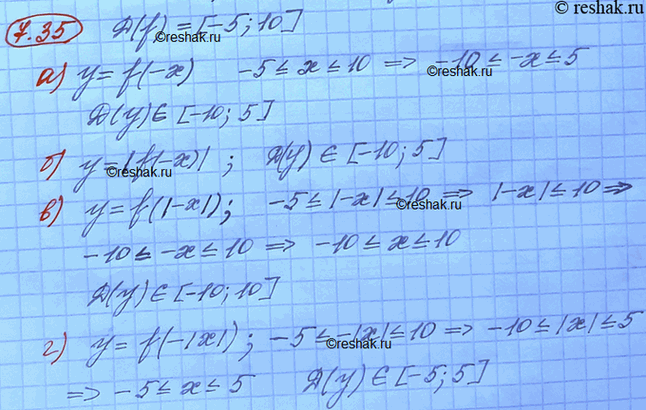 © reshak.ru
7.35 D(f) = [-5; 10]
© reshak.ru
а) y = f(-x) -5 ≤ x ≤ 10 => -10 ≤ -x ≤ 5
© reshak.ru
D(y) ∈ [-10; 5]
б) y = |f(-x)| ; D(y) ∈ [-10; 5]
© reshak.ru
в) y = f(|-x|); -5 ≤ |-x| ≤ 10 => |-x| ≤ 10 =>
© reshak.ru
-10 ≤ -x ≤ 10 => -10 ≤ x ≤ 10
D(y) ∈ [-10; 10]
г) y = f(-|x|) ; -5 ≤ -|x| ≤ 10 => -10 ≤ |x| ≤ 5
© reshak.ru
=> -5 ≤ x ≤ 5 D(y) ∈ [-5; 5]
© reshak.ru